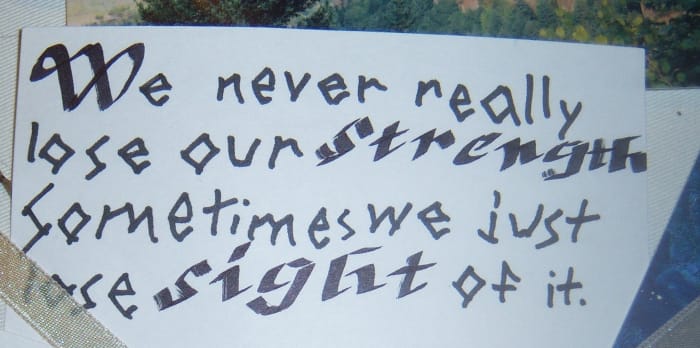 We never really
lose our Strength
Sometimes we just
lose sight of it.